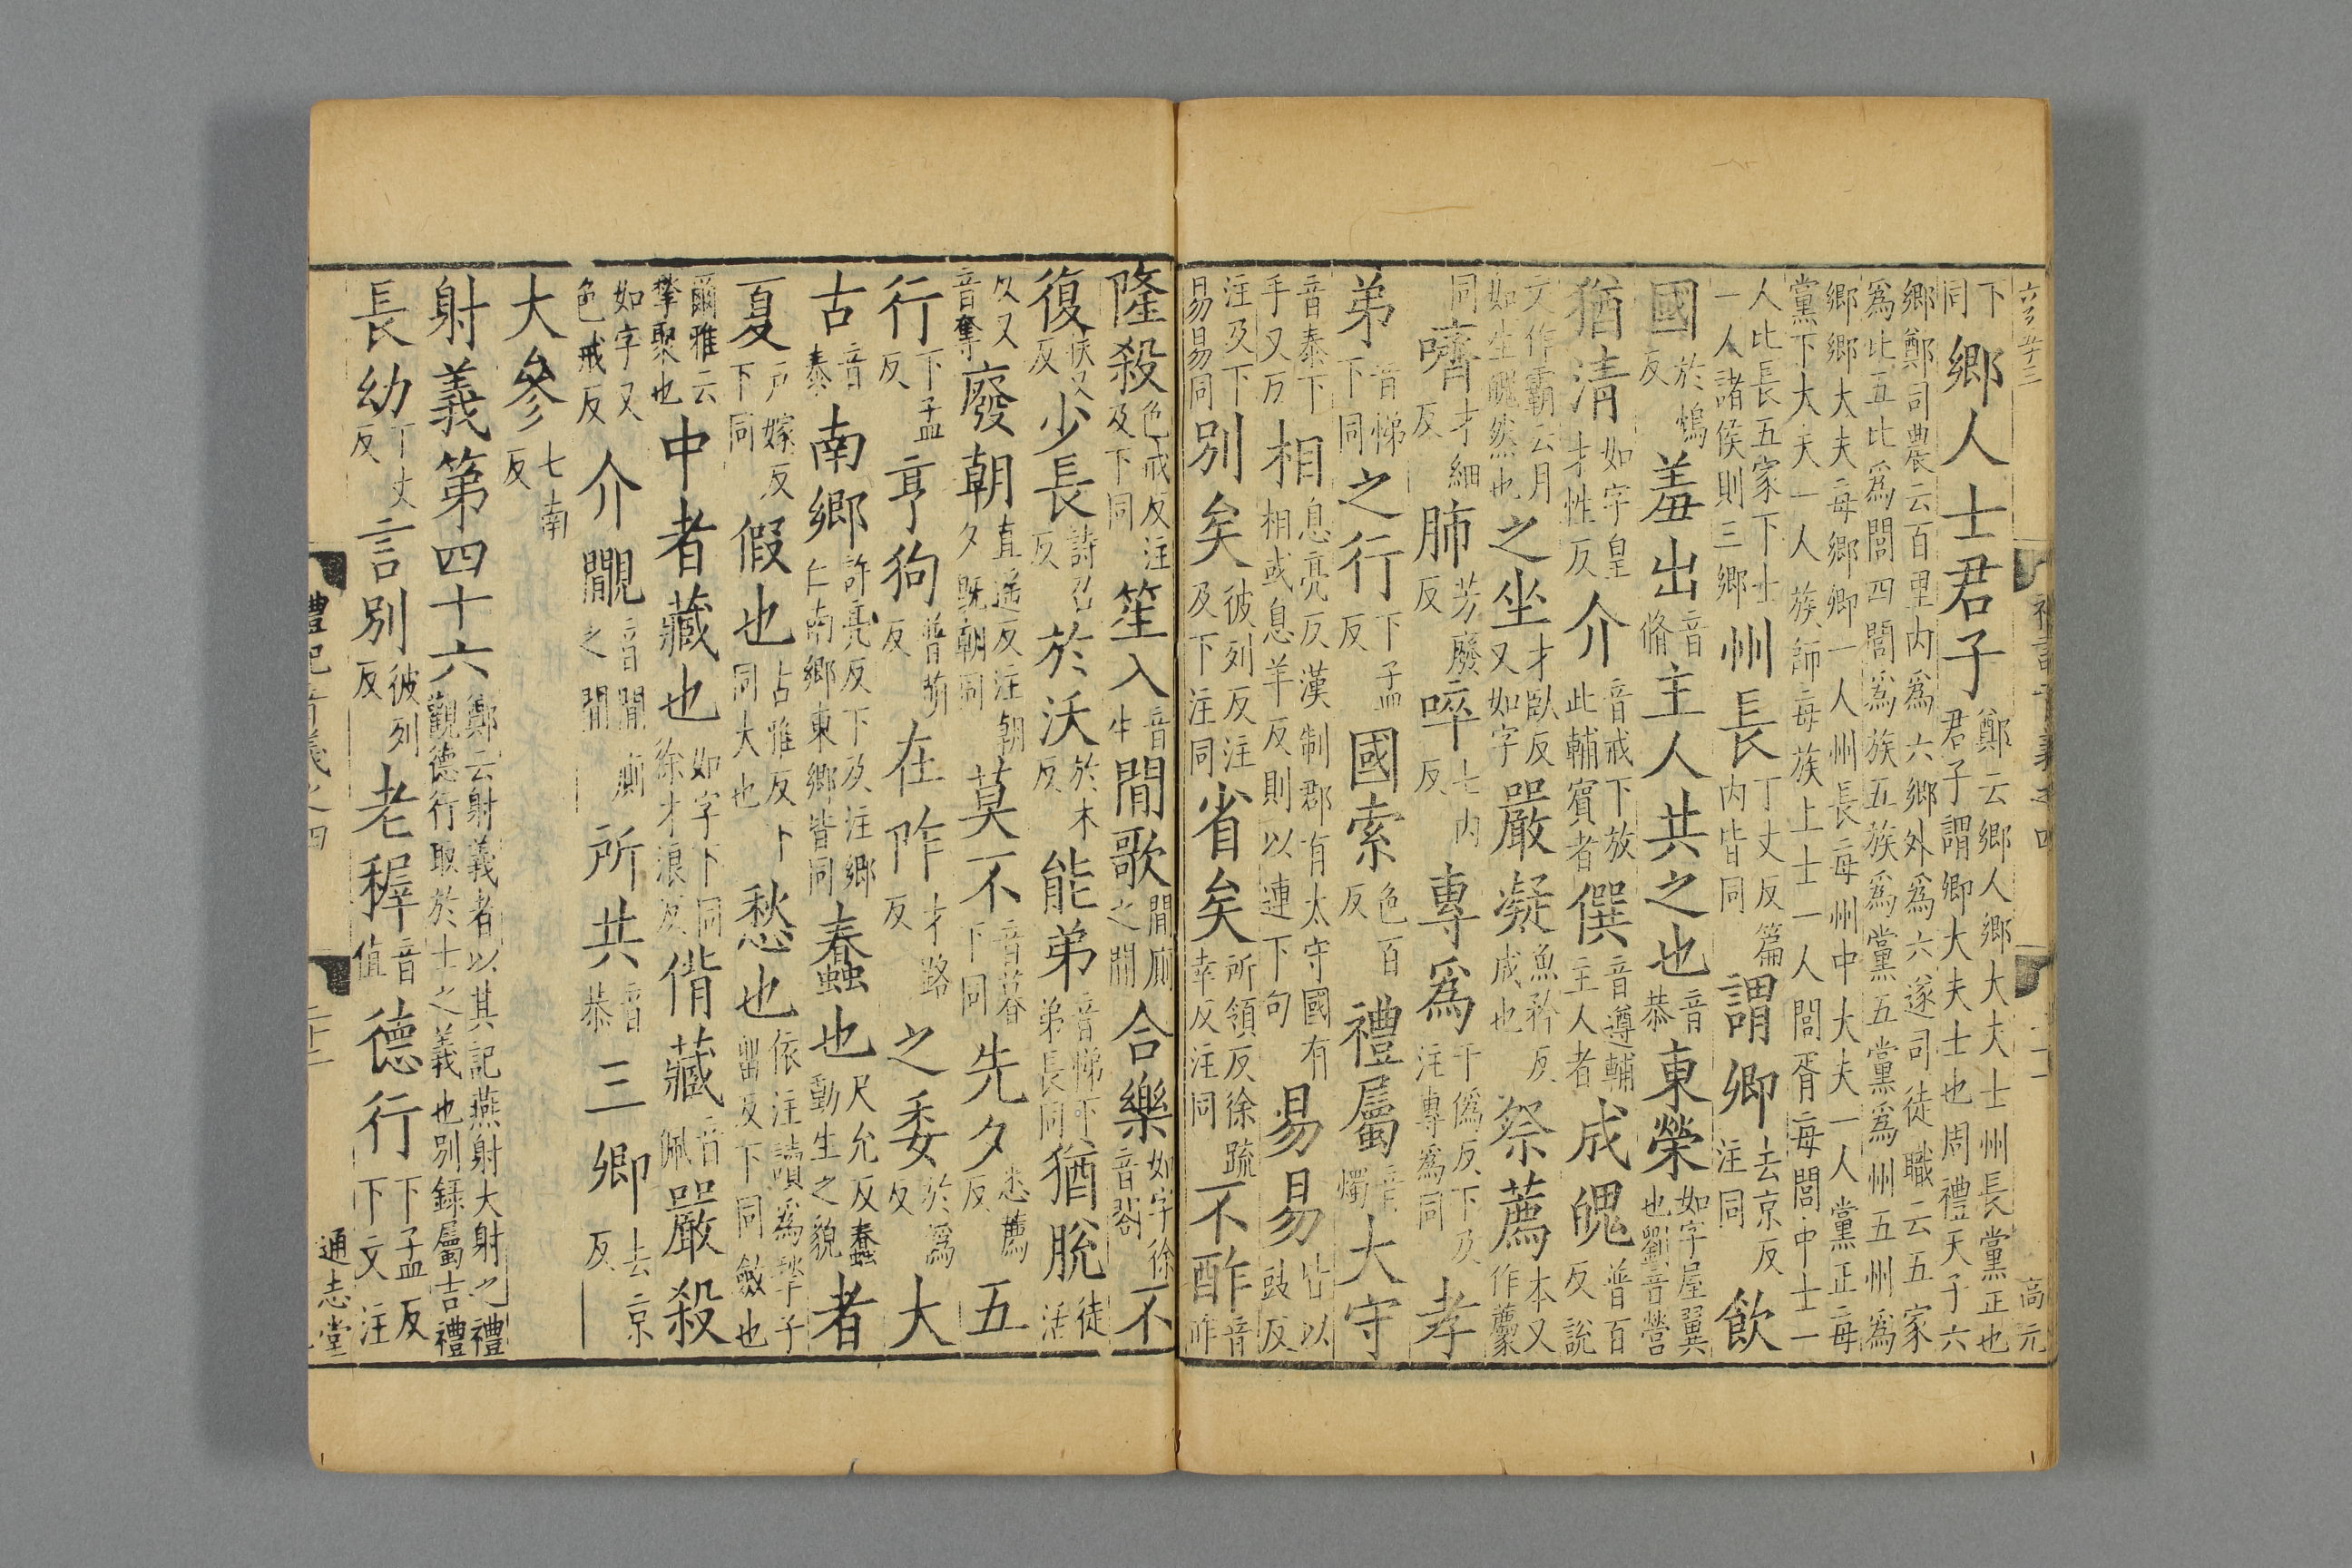 禮記音義之四
高元
下同鄉人士君子鄭云鄉人鄉大夫士州長黨正也君子謂卿大夫士也周禮天子六
鄉鄭司農云百里內爲六鄉外爲六遂司徒職云五家爲比五比爲閭四閭爲族五族爲黨五黨爲州五州爲
鄉鄉大夫每鄉卿一人州長每州中大夫一人黨正每黨下大夫一人族師每族上士一人閭胥每閭中士一
人比長五家下士一人諸侯則三鄉州長丁丈反篇內皆同謂卿去京反注同飲
國於鴆反羞出音脩主人共之也音恭東榮如字屋翼也劉音營
猶清如字皇才性反介音戒下放此輔賓者僎音遵輔主人者成魄普百反說
文作霸云月如生魄然也之坐才臥反又如字嚴凝魚矜反成也祭薦本又作薦
同嚌才細反肺芳廢反啐七內反專爲于僞反下及注專爲同孝
弟音悌下同之行下孟反國索色百反禮屬音燭大守
音泰下手又反相息亮反漢制郡有太守國有相或息羊反則以連下句易易出以豉反
注及下易易同別矣彼列反注及下注同省矣所領反徐疏幸反注同不酢音昨
隆殺色戒反注及下同笙入音生閒歌閒廁之閒合樂如字徐音閤不
復扶又反少長詩召反於沃於木反能弟音悌下弟長同猶脫徒活
反又音奪廢朝直遙反注朝夕既朝同莫不音暮下同先夕悉薦反五
行下孟反亨狗普萌反在阼才路反之委於爲反大
古音泰南鄉許亮反下及注鄉仁南鄉東鄉皆同蠢也尺允反蠢動生之貌者
夏戶嫁反下同假也古雅反下同大也愁也依注讀爲揫子留反下同斂也
爾雅云揫聚也中者藏也如字下同徐才浪反偝藏音佩嚴殺
如字又色戒反介覵音閒廁之閒所共音恭三卿去京反
大參七南反
射義第四十六鄭云射義者以其記燕射大射之禮觀德行取於士之義也別錄屬吉禮
長幼丁丈反言別彼列反老穉音值德行下孟反下文注
禮記音義之四
二十二
通志堂